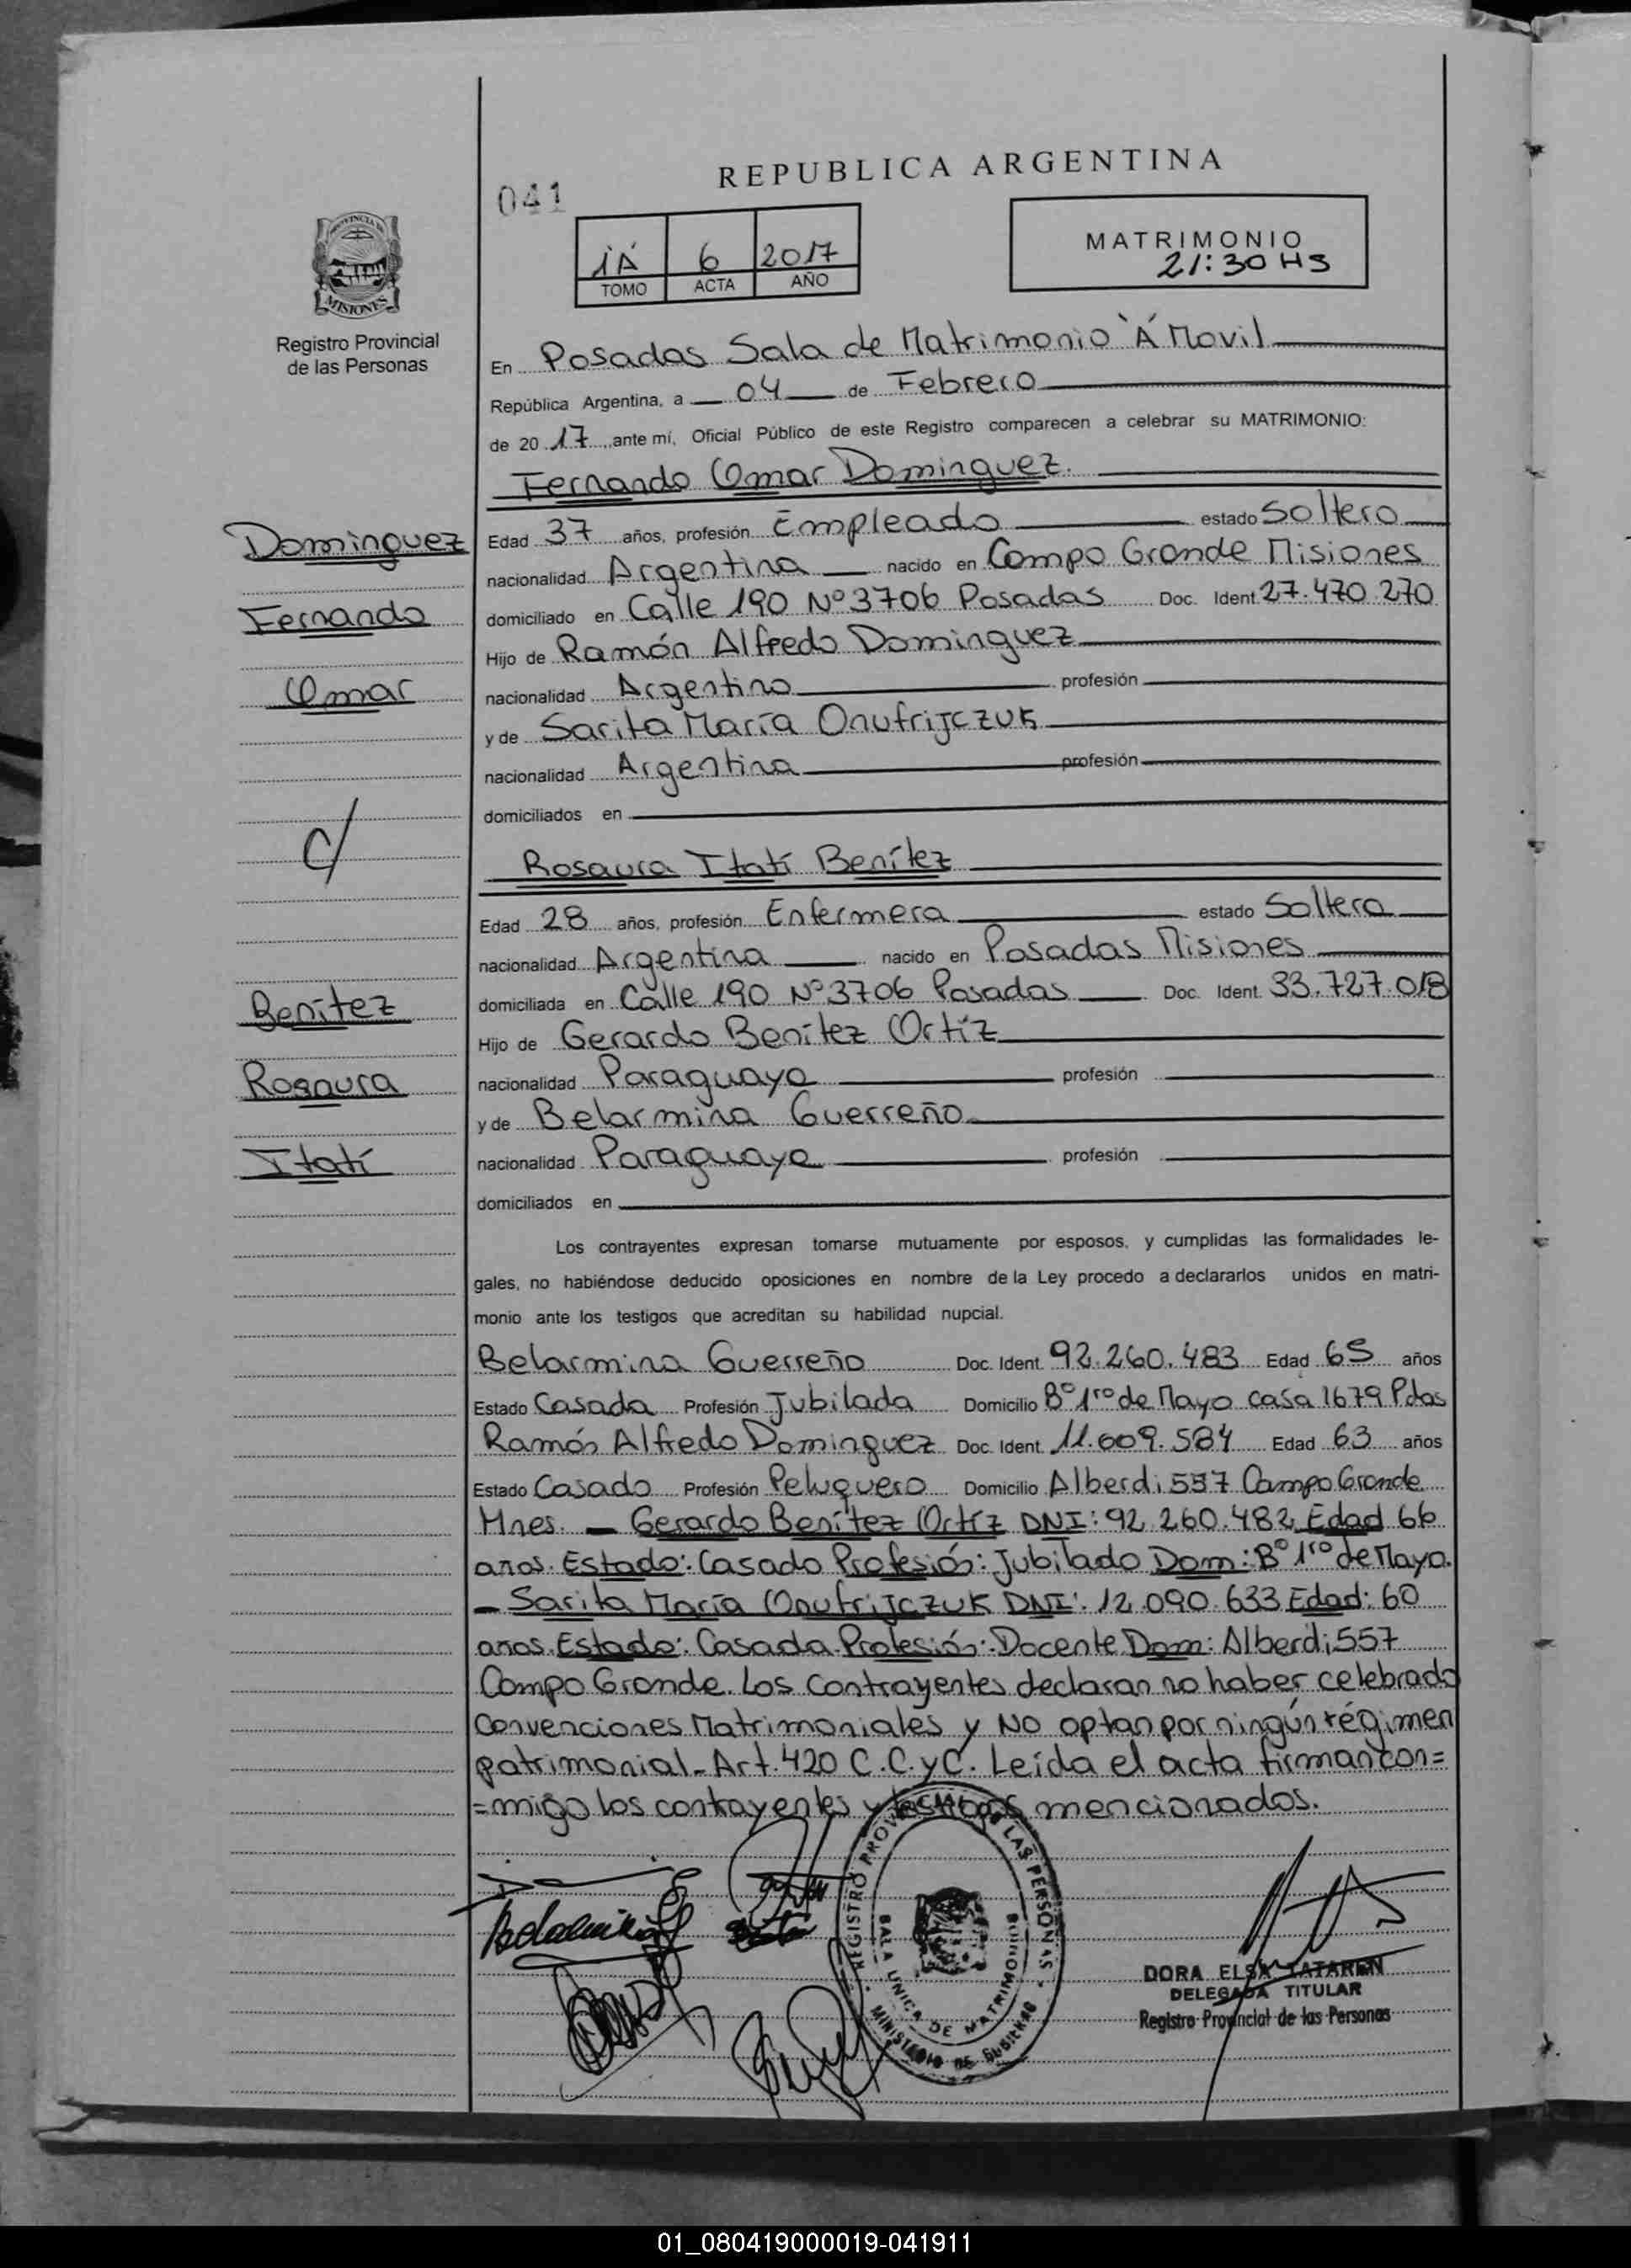 REPUBLICA ARGENTINA
041
1A 6 2017
TOMO ACTA AÑO
MATRIMONIO
21:30 HS
PROVINCIA DE
MISIONES
Registro Provincial
de las Personas
En Posadas Sala de Matrimonio "A" Movil
República Argentina, a 04 de Febrero
de 2017, ante mí, Oficial Público de este Registro comparecen a celebrar su MATRIMONIO:
Fernando Omar Dominguez.
Dominguez
Fernando
Omar
Edad 37 años, profesión Empleado estado Soltero
nacionalidad Argentina nacido en Campo Grande Misiones
domiciliado en Calle 190 Nº 3706 Posadas Doc. Ident. 27.470.270
Hijo de Ramón Alfredo Dominguez
nacionalidad Argentino profesión
y de Sarita María Onufrijczuk
nacionalidad Argentina profesión
domiciliados en
c/
Rosaura Itatí Benítez
Edad 28 años, profesión Enfermera estado Soltera
nacionalidad Argentina nacido en Posadas Misiones
Benítez
Rosaura
Itatí
domiciliada en Calle 190 Nº 3706 Posadas Doc. Ident. 33.727.018
Hijo de Gerardo Benítez Ortíz
nacionalidad Paraguaya profesión
y de Belarmina Guerreño
nacionalidad Paraguaya profesión
domiciliados en
Los contrayentes expresan tomarse mutuamente por esposos, y cumplidas las formalidades le-
gales, no habiéndose deducido oposiciones en nombre de la Ley procedo a declararlos unidos en matri-
monio ante los testigos que acreditan su habilidad nupcial.
Belarmina Guerreño Doc. Ident. 92.260.483 Edad 65 años
Estado Casada Profesión Jubilada Domicilio Bº 1ro de Mayo casa 1679 Pdas
Ramón Alfredo Dominguez Doc. Ident. 11.609.584 Edad 63 años
Estado Casado Profesión Peluquero Domicilio Alberdi 557 Campo Grande
Mnes. - Gerardo Benítez Ortíz DNI: 92.260.482 Edad 66
años. Estado: Casado Profesión: Jubilado Dom: Bº 1ro de Mayo.
- Sarita María Onufrijczuk DNI: 12.090.633 Edad: 60
años. Estado: Casada. Profesión: Docente Dom: Alberdi 557
Campo Grande. Los Contrayentes declaran no haber celebrado
Convenciones Matrimoniales y NO optan por ningún régimen
patrimonial. Art. 420 C.C.yC. Leída el acta firman con=
=migo los contrayentes y testigos mencionados.
REGISTRO PROVINCIAL DE LAS PERSONAS
SALA UNICA DE MATRIMONIO
MINISTERIO DE
DORA ELSA TATAREN
DELEGADA TITULAR
Registro Provincial de las Personas
01_080419000019-041911